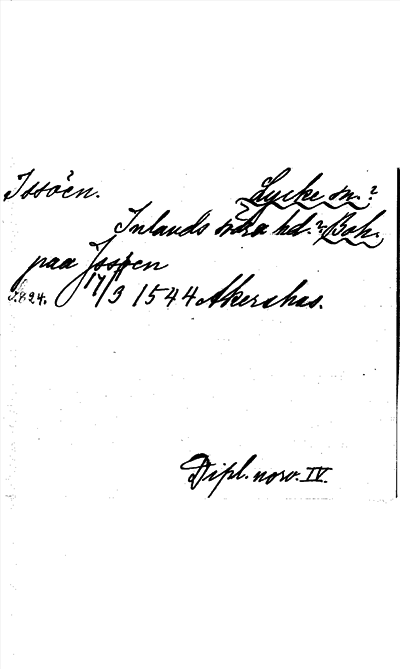 Issöen. Lycke sn.?
Inlands södra hd.? Boh.
paa Jssøen
s. 824. 17/3 1544 Akershus.
Dipl. norv. IV.